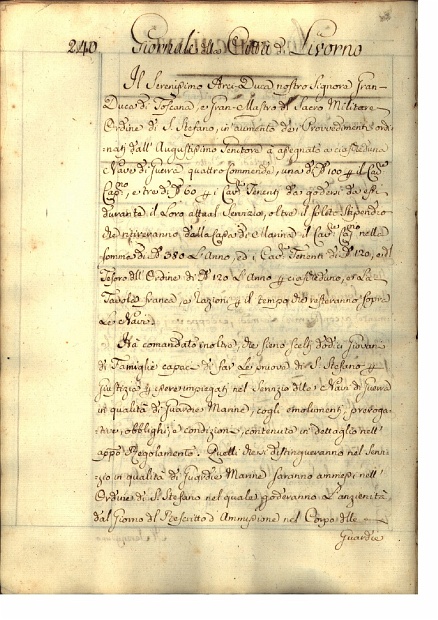 240 Giornale della Città di Livorno
Il Serenissimo Arci-Duca nostro Signore Gran-
Duca di Toscana, e Gran-Mastro del Sacro Militare
Ordine di S. Stefano, in aumento dei Provvedimenti ordi-
nati dall' Augustissimo Genitore a assegnato a ciascheduna
Nave di Guerra quattro Commende, una di 100 il
e tre di 60 i Tenenti da godersi da essi
durante il Loro attual Servizio, oltre il solito stipendio
che tireranno dalla Cassa di Marina il nella
somma di 380 L'Anno, ed i Tenenti di 120, e dal
Tesoro dell' Ordine di 120 L'Anno ciascheduno, e La
Tavola franca, e Razioni il tempo che resteranno sopra
Le Navi.
Ha comandato inoltre, che sieno scelti dodici Giovani
di Famiglie capaci di far Le prove di S. Stefano
Giustizia essere impiegati nel Servizio delle Navi di Guerra
in qualità di Guardie Marine, cogli emolumenti, preroga-
tive, obblighi, e condizioni, contenute in dettaglio nell'
Regolamento. Quelli che si distingueranno nel Servi-
zio in qualità di Guardie Marine saranno ammessi nell'
Ordine di S. Stefano nel quale goderanno L'anzienità
dal Giorno del Rescritto d'Ammissione nel Corpo delle
Guardie